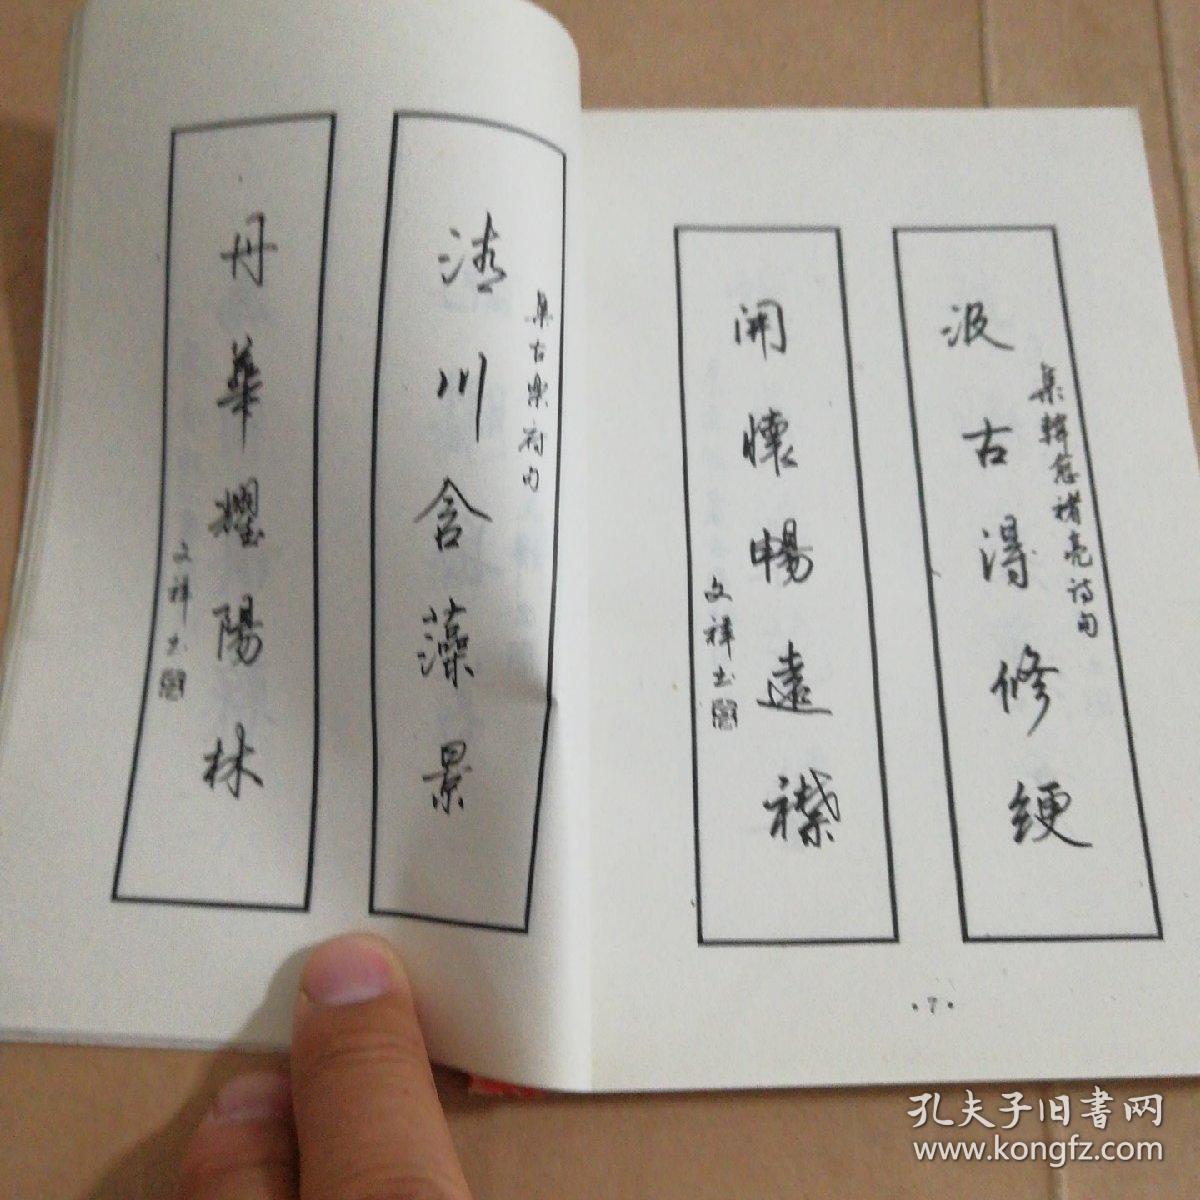 集古樂府句
清川含藻景
丹華耀陽林
文祥书
集韓愈褚亮诗句
汲古得修绠
開懷暢遠襟
文祥书
·7·
孔夫子旧书网
www.kongfz.com